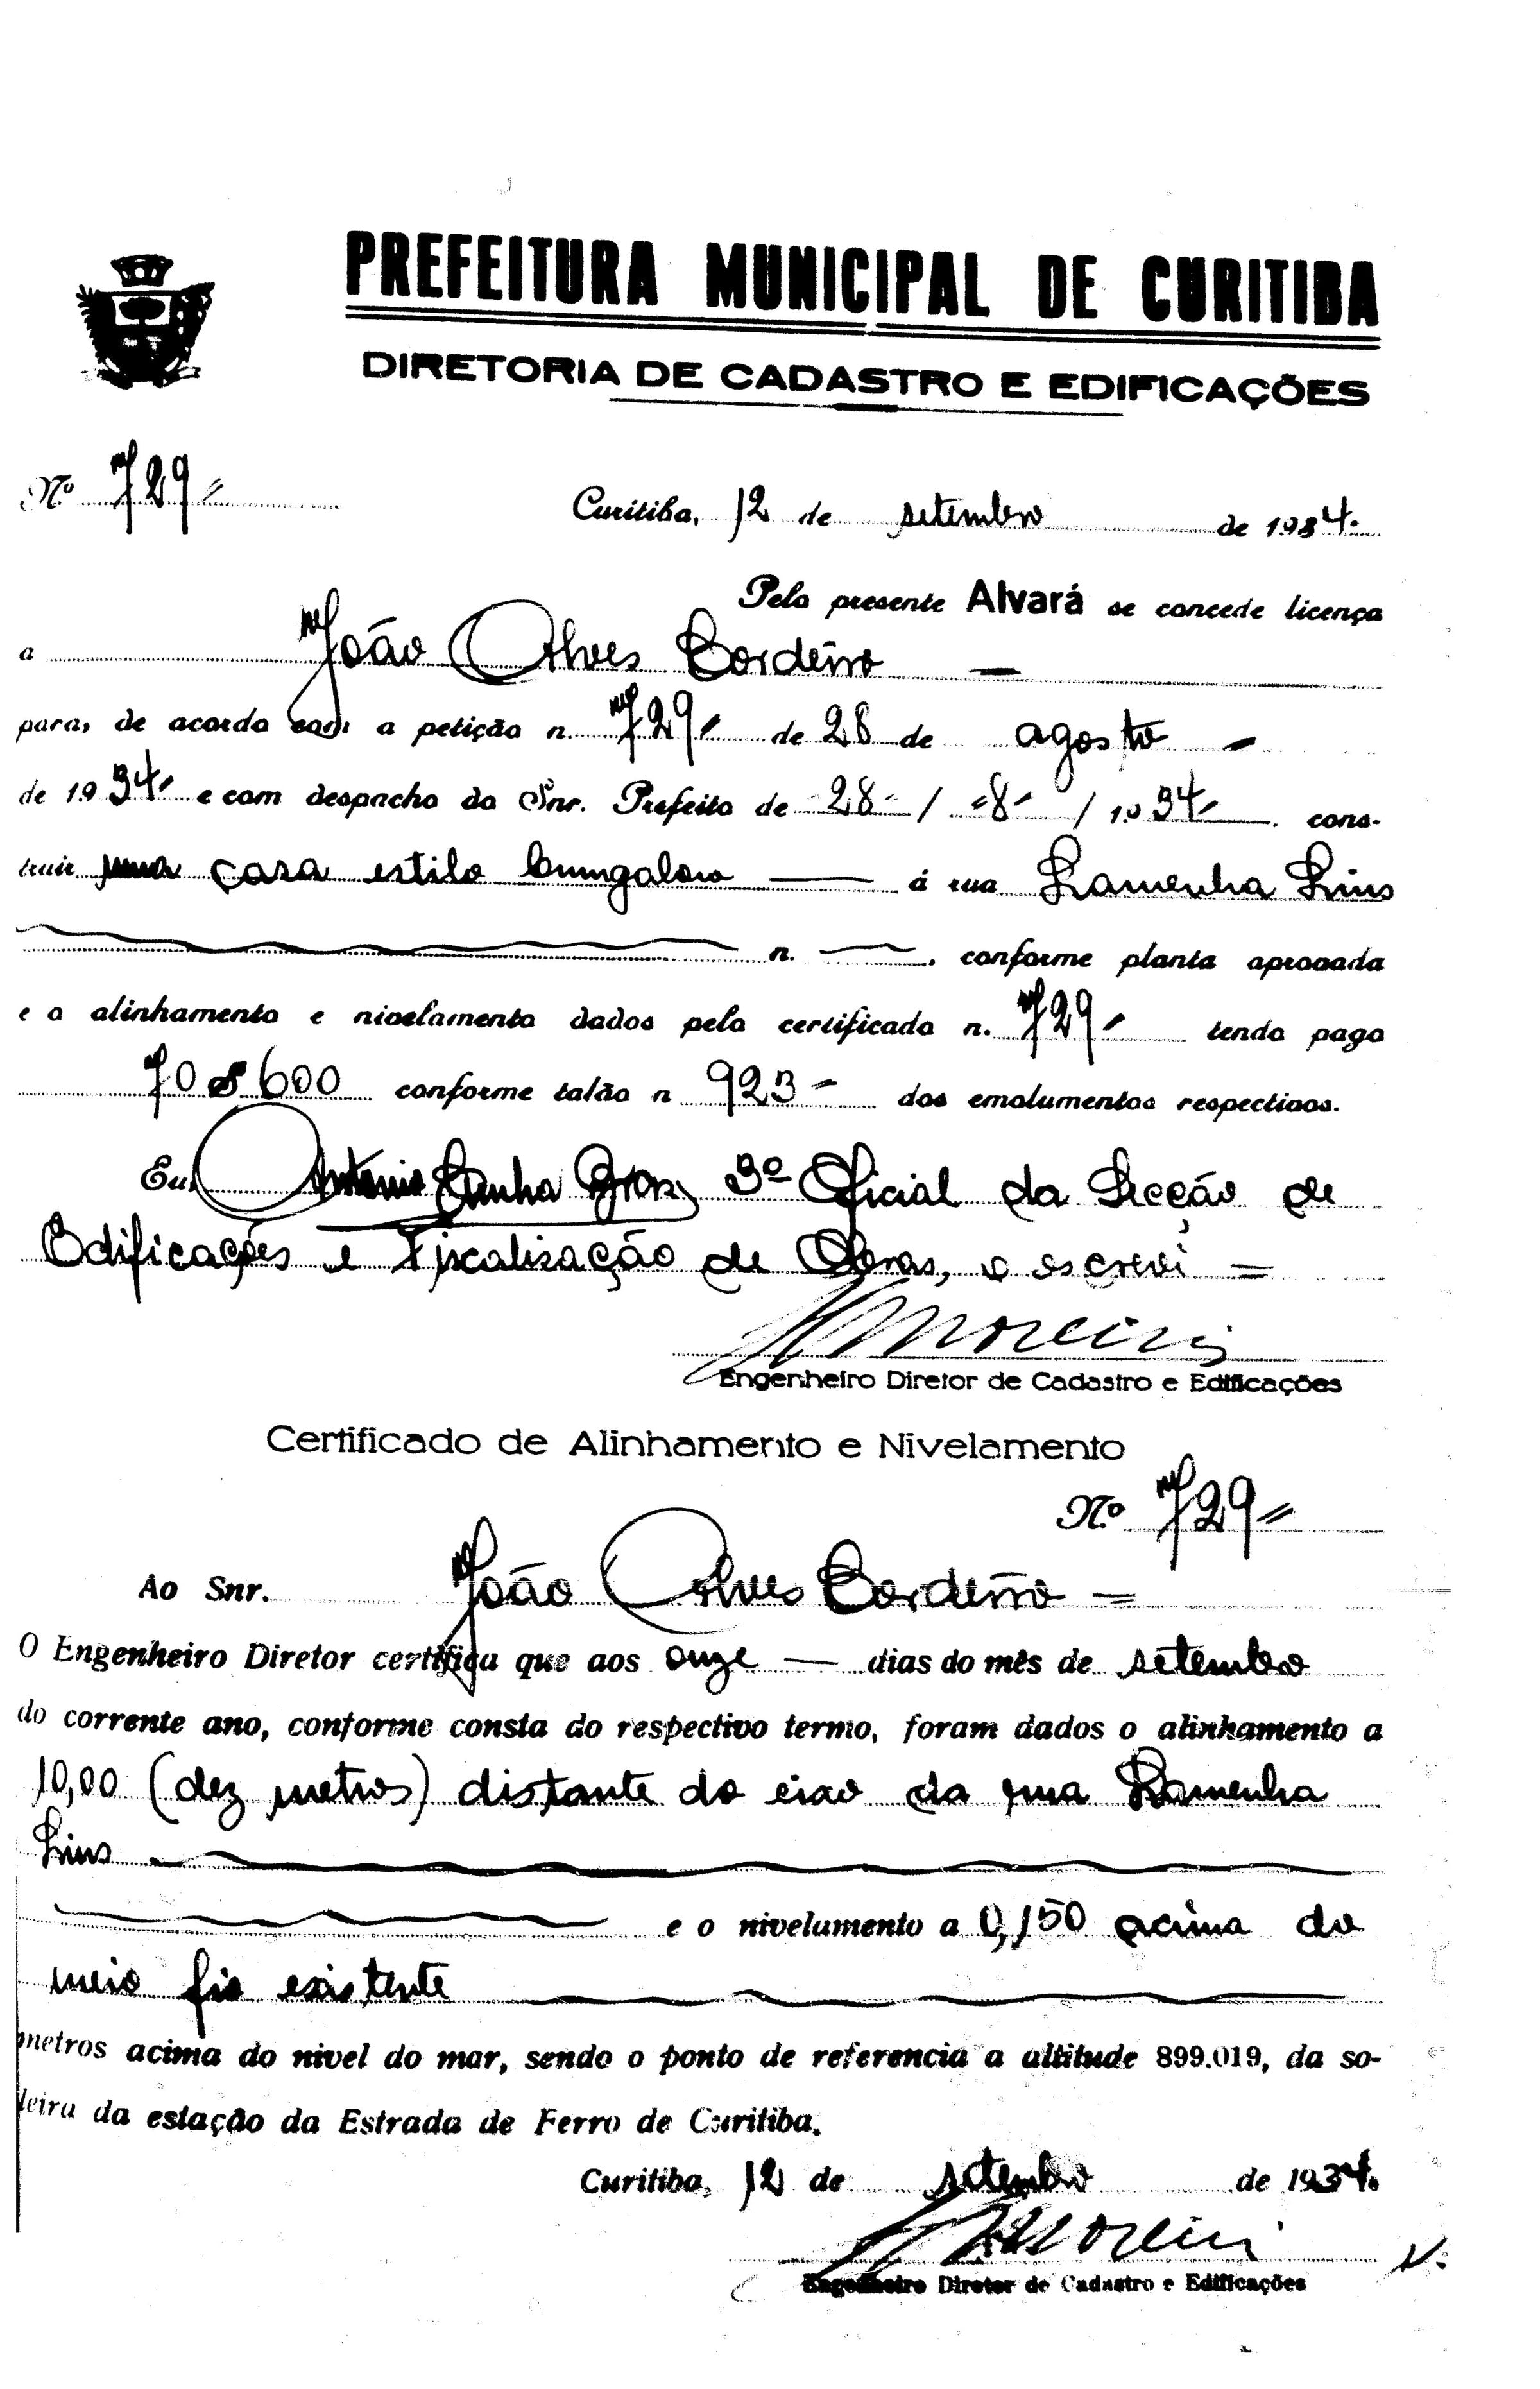 PREFEITURA MUNICIPAL DE CURITIBA
DIRETORIA DE CADASTRO E EDIFICAÇÕES
Nº 729
Curitiba, 12 de setembro de 1934.
Pelo presente Alvará se concede licença
a João Alves Cordeiro —
para, de acordo com a petição n. 729 de 28 de agosto —
de 1934 e com despacho do Snr. Prefeito de 28 / 8 / 1934 . cons-
truir uma casa estilo bungalow — á rua Lamenha Lins
n. — . conforme planta aprovada
e o alinhamento e nivelamento dados pelo certificado n. 729 tendo pago
70$600 conforme talão n 923 dos emolumentos respectivos.
Eu, Antonio Cunha Braz, 3º Oficial da Secção de
Edificações e Fiscalização de Obras, o escrevi =
Moreira
Engenheiro Diretor de Cadastro e Edificações
Certificado de Alinhamento e Nivelamento
Nº 729
Ao Snr. João Alves Cordeiro =
O Engenheiro Diretor certifica que aos onze — dias do mês de setembro
do corrente ano, conforme consta do respectivo termo, foram dados o alinhamento a
10,00 (dez metros) distante do eixo da rua Lamenha
Lins
e o nivelamento a 0,150 acima do
meio fio existente
metros acima do nivel do mar, sendo o ponto de referencia a altitude 899.019, da so-
leira da estação da Estrada de Ferro de Curitiba.
Curitiba, 12 de setembro de 1934.
Moreira
Engenheiro Diretor de Cadastro e Edificações